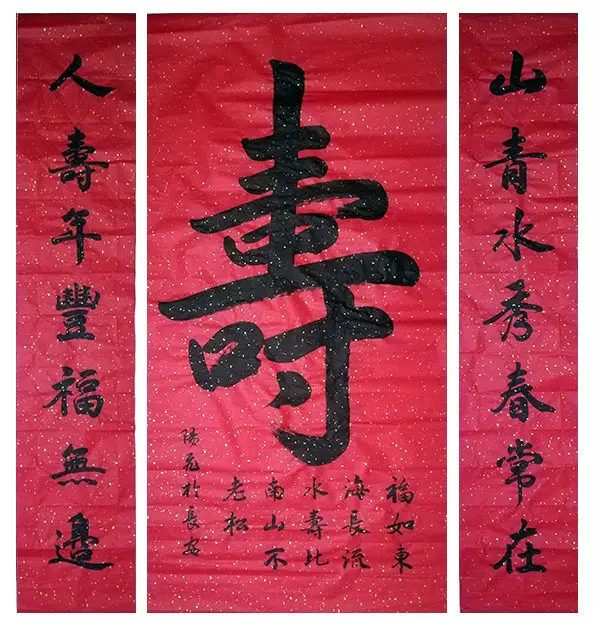 山青水秀春常在
壽
福如東
海長流
水壽比
南山不
老松
於長安
人壽年豐福無邊